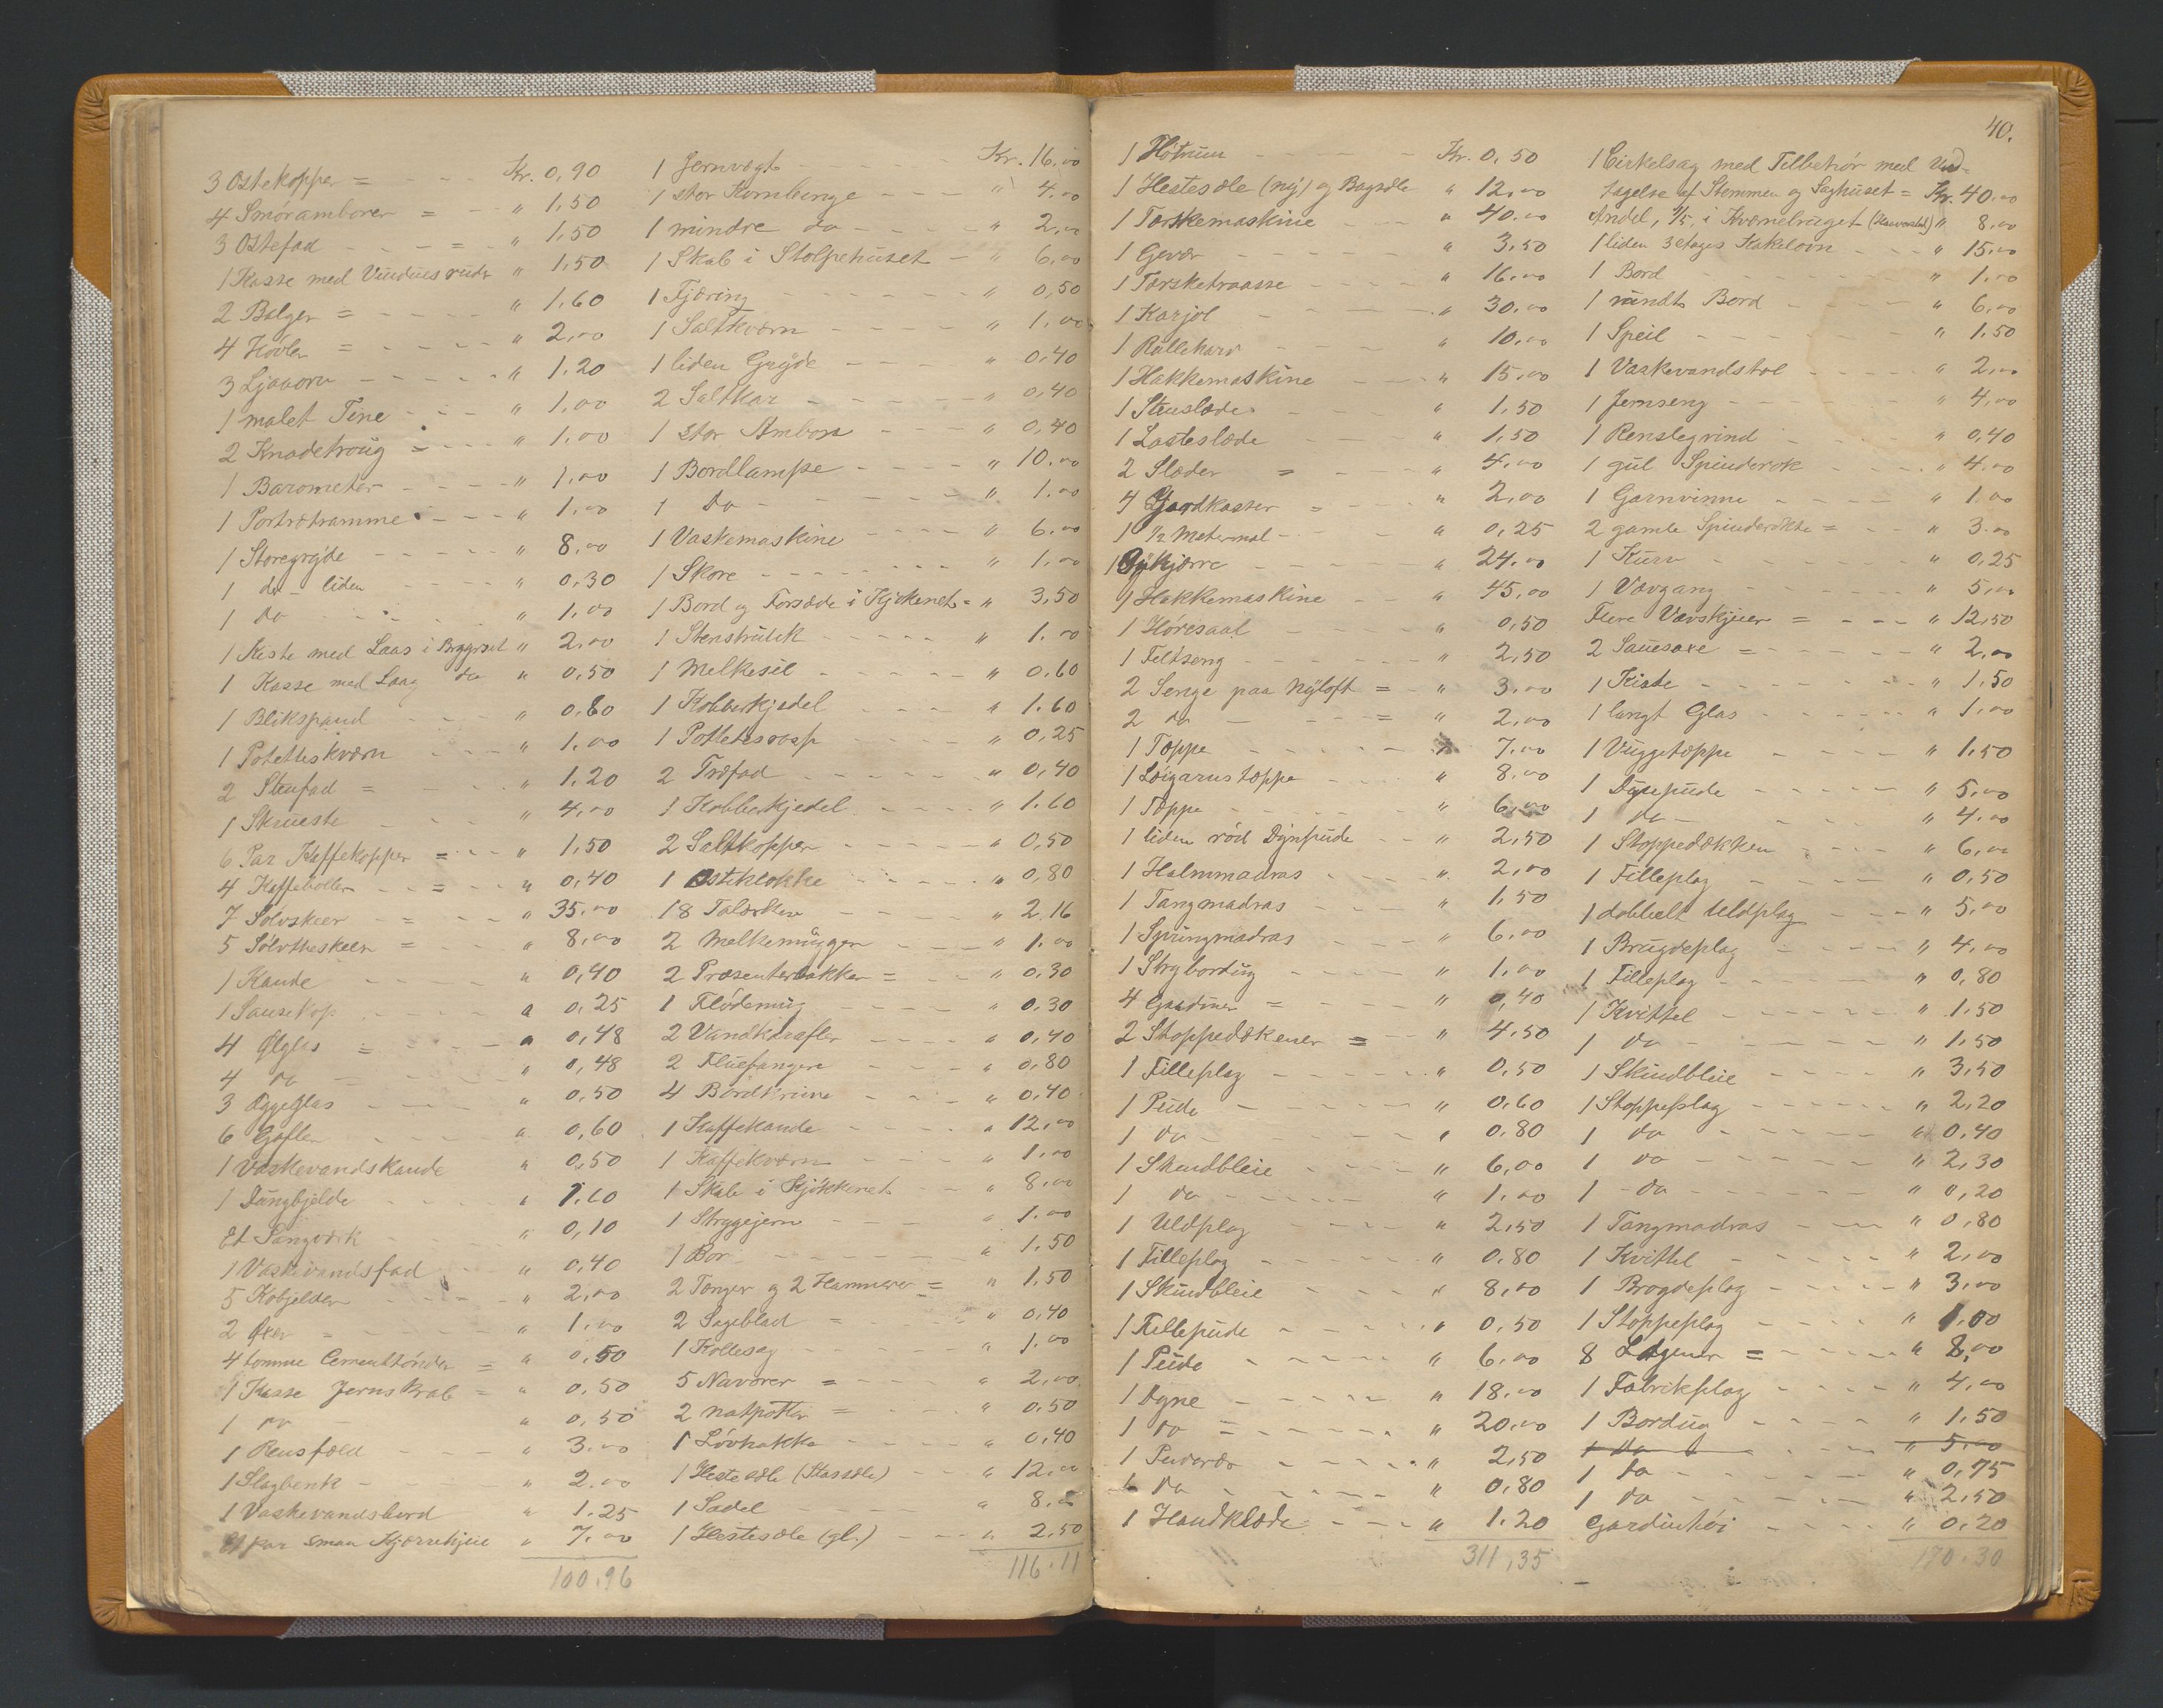 3 Ostekopper = - - - Kr. 0,90
4 Smöramborer = - " 1,50
3 Ostefad - - - = - " 1,50
1 Kasse med Vinduesruder " 1,50
2 Balger = - - - - " 1,60
4 Hövler = - - - - " 2,00
3 Ljaaorv - - - - - " 1,20
1 malet Tine - - - " 1,00
2 Knadetroug = - - - " 1,00
1 Barometer - - - - " 1,00
1 Portrætramme - - - " 1,00
1 Storegryde - - - - " 8,00
1 do - liden - - - " 0,30
1 Do - - - - " 1,00
1 Kiste med Laas i Bryggeset " 2,00
1 Kasse med Laag do " 0,50
1 Blikspand - - - " 0,80
1 Potetteskværn - - - " 1,00
2 Stenfad = - - - " 1,20
1 Skrueste - - - " 4,00
6 Par Kaffekopper = - - " 1,50
4 Kaffeboller - - = - - " 0,40
7 Sölvskeer - = - - " 35,00
5 Sölvtheskeer = - - " 8,00
1 Kande - - - - " 0,40
1 Sausekop - - - - " 0,25
4 Ølglas = - - - " 0,48
4 do - - - - " 0,48
3 Æggeglas - - - - " 0,50
6 Gafler - - - - " 0,60
1 Vaskevandskande " 0,50
1 Dungbjelde - - - " 1.60
Et Sangværk - - - " 0,10
1 Vaskevandsfad - - " 0,40
5 Kobjelder - - - - " 2,00
2 Øxer = - - - - " 1,00
4 tomme Cementtönder = " 0,50
1 Kasse Jernskrab = " 0,50
1 do - " 0,50
1 Rensfæld - - - " 3.00
1 Slagbenk - - - - " 2.00
1 Vaskevandsbord " 1.25
Et par smaa Kjærrehjul " 7.00
100.96
1 Jernvægt - - - - - Kr. 16,00
1 stor Kornbinge - - - " 4,00
1 mindre do - - - - " 2,00
1 Skab i Stolpehuset - " 6,00
1 Fjæring - - - - - " 0,50
1 Saltkværn - - - - " 1.00
1 liden Gryde - - - " 0,40
2 Saltkar - - - - - " 0,40
1 stor Ambor - - - " 0,40
1 Bordlampe - - - - " 10.00
1 Do - - - - - - " 1.00
1 Vaskemaskine - - - " 6.00
1 Skore - - - - - - " 1,00
1 Bord og Forsæde i Kjökkenet = " 3,50
1 Stenstrulik - - - - " 1.00
1 Melkesil - - - - - " 0.60
1 Kobberkjedel - - - " 1.60
1 Pottetesrasp - - - " 0,25
2 Træfad - - - - - " 0,40
1 Kobberkjedel - - - - " 1.60
2 Saltkopper - - - - - " 0,50
1 Osteklokke - - - - " 0,80
18 Talærken - - - " 2.16
2 Melkemugger - - - " 1.00
2 Præsenterbakker = - " 0.30
1 Flödemug - - - - " 0.30
2 Vandkarafler - - - " 0,40
2 Fluefangere - - - " 0.80
4 Bordkrune - - - " 0,40
1 Kaffekande - - - - " 12,00
1 Kaffekværn - - - " 1.00
1 Skab i Kjökkenet - - " 8.00
1 Strygejern - - - " 1.00
1 Bor - - - - - - " 1.50
2 Tænger og 2 Hammerer = " 1,50
2 Sageblad = - - - " 0,40
1 Kollesag - - - - - " 1.00
5 Navarer = - - - " 2,00
2 natpotter = - - - " 0.50
1 Lövhakke - - - " 0,40
1 Hestesæle (Stassæle) - - " 12,00
1 Sadel - - - - - " 8.00
1 Hestesæle (gl.) - - - " 2.50
116.11
40.
1 Hötrum - - - - Kr. 0,50
1 Hestesæle (ny) og Bagsæle " 12,00
1 Torskemaskine - - - " 40.00
1 Gevær - - - - - " 3,50
1 Torsketraasse - - - " 16.00
1 Karjol - - - - - " 30,00
1 Rullekarv - - - - " 10,00
1 Hakkemaskine - - - " 15,00
1 Stenslæde - - - - " 1,50
1 Lasteslæde - - - " 1,50
2 Slæder = - - " 4.00
4 Gjordkaster = - - " 2,00
1 1/2 Metermal - - - " 0,25
1 Gjikjærre - - - - " 24.00
1 Hakkemaskine - - " 45,00
1 Höresaal - - - - " 0,50
1 Feltseng - - - - - " 2,50
2 Senge paa Nyloft = - " 3.00
2 do - - - = " 2,00
1 Tæppe - - - - - " 7.00
1 Löigarnstæppe - - - " 8.00
1 Tæppe - - - - - " 6,00
1 liden röd Dynpude - - " 2,50
1 Halmmadras - - - " 2,00
1 Tangmadras - - - " 1,50
1 Springmadras - - " 6.00
1 Strybordug - - - - " 1,00
4 Gardiner = - - - " 0,40
2 Stoppedækener = - " 4.50
1 Filleplag - - - - - " 0,50
1 Pude - - - - - " 0.60
1 do - - - - - " 0.80
1 Skindbleie - - - - " 6,00
1 do - - - - " 1.00
1 Uldplag - - - - " 2,50
1 Filleplag - - - - - " 0.80
1 Skindbleie - - - - " 8,00
1 Fillepude - - - - " 0,50
1 Pude - - - - " 6.00
1 Dyne - - - - - " 18.00
1 do = - - - - " 20.00
1 Puevær - - - - - " 2,50
6 Do - - - - - " 0.80
1 Haandklæde - - - - " 1.20
311,35
1 Cirkelsag med Tilbehör med Und-
tagelse af Stemmen og Saghuset = Kr. 40.00
Andel, 1/5, i Kværnebruget " 8,00
1 liden 3 etages Kakelovn - - - " 15,00
1 Bord - - - - - - " 1.00
1 rundt Bord - - - - " 6,00
1 Speil - - - - - - " 1.50
1 Vaskevandstol - - - - " 2,00
1 Jernseng - - - - - " 4,00
1 Renslegrind - - - - " 0,40
1 gul Spinderok - - - - " 4.00
1 Garnvinne - - - - " 1.00
2 gamle Spinderokke = - - " 3.00
1 Kurv - - - - - - " 0,25
1 Vævgang - - - - - " 5,00
Flere Vævskjeer = - - - " 12,50
2 Sauesaxe = - - - - " 2,00
1 Kiste - - - - - - " 1.50
1 langt Glas - - - - - " 1,00
1 Vuggetæppe - - - - " 1,50
1 Dynepude - - - - " 5.00
1 do - - - - - " 4.00
1 Stoppedækken - - - - " 6,00
1 Filleplag - - - - " 0,50
1 dobbelt Uldplag - - - " 5,00
1 Brugdeplag - - - - " 4,00
1 Filleplag - - - - - " 0,80
1 Kvittel - - - - - " 1.50
1 do - - - - - " 1.50
1 Skindbleie - - - - " 3,50
1 Stoppeplag - - - - - " 2,20
1 do - - - - - " 0.40
1 do - - - - - " 2,30
1 - do - - - - - " 0,20
1 Tangmadras - - - " 0,80
1 Kvittel - - - - - " 2,00
1 Brogdeplag - - - - " 3,00
1 Stoppeplag - - - - " 1.00
8 Lagener = - - - - " 8,00
1 Fabrikplag - - - - " 4,00
1 Bordug - - - - - " 1.50
1 do - - - - - " 5.00
1 Do - - - - - " 0,75
1 do - - - - - " 2,50
Gardinhöi - - - - " 0.20
190.30